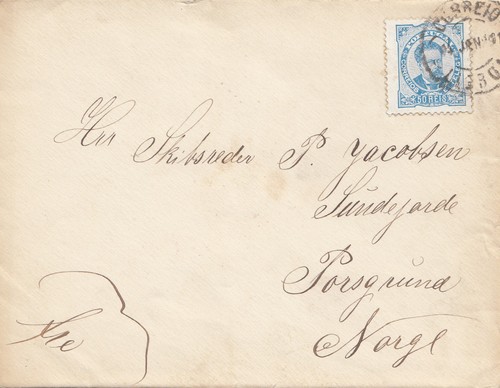 CORREIO
50 REIS
Hrr Skibsreder P. Jacobsen
Sundejorde
Porsgrund
Norge